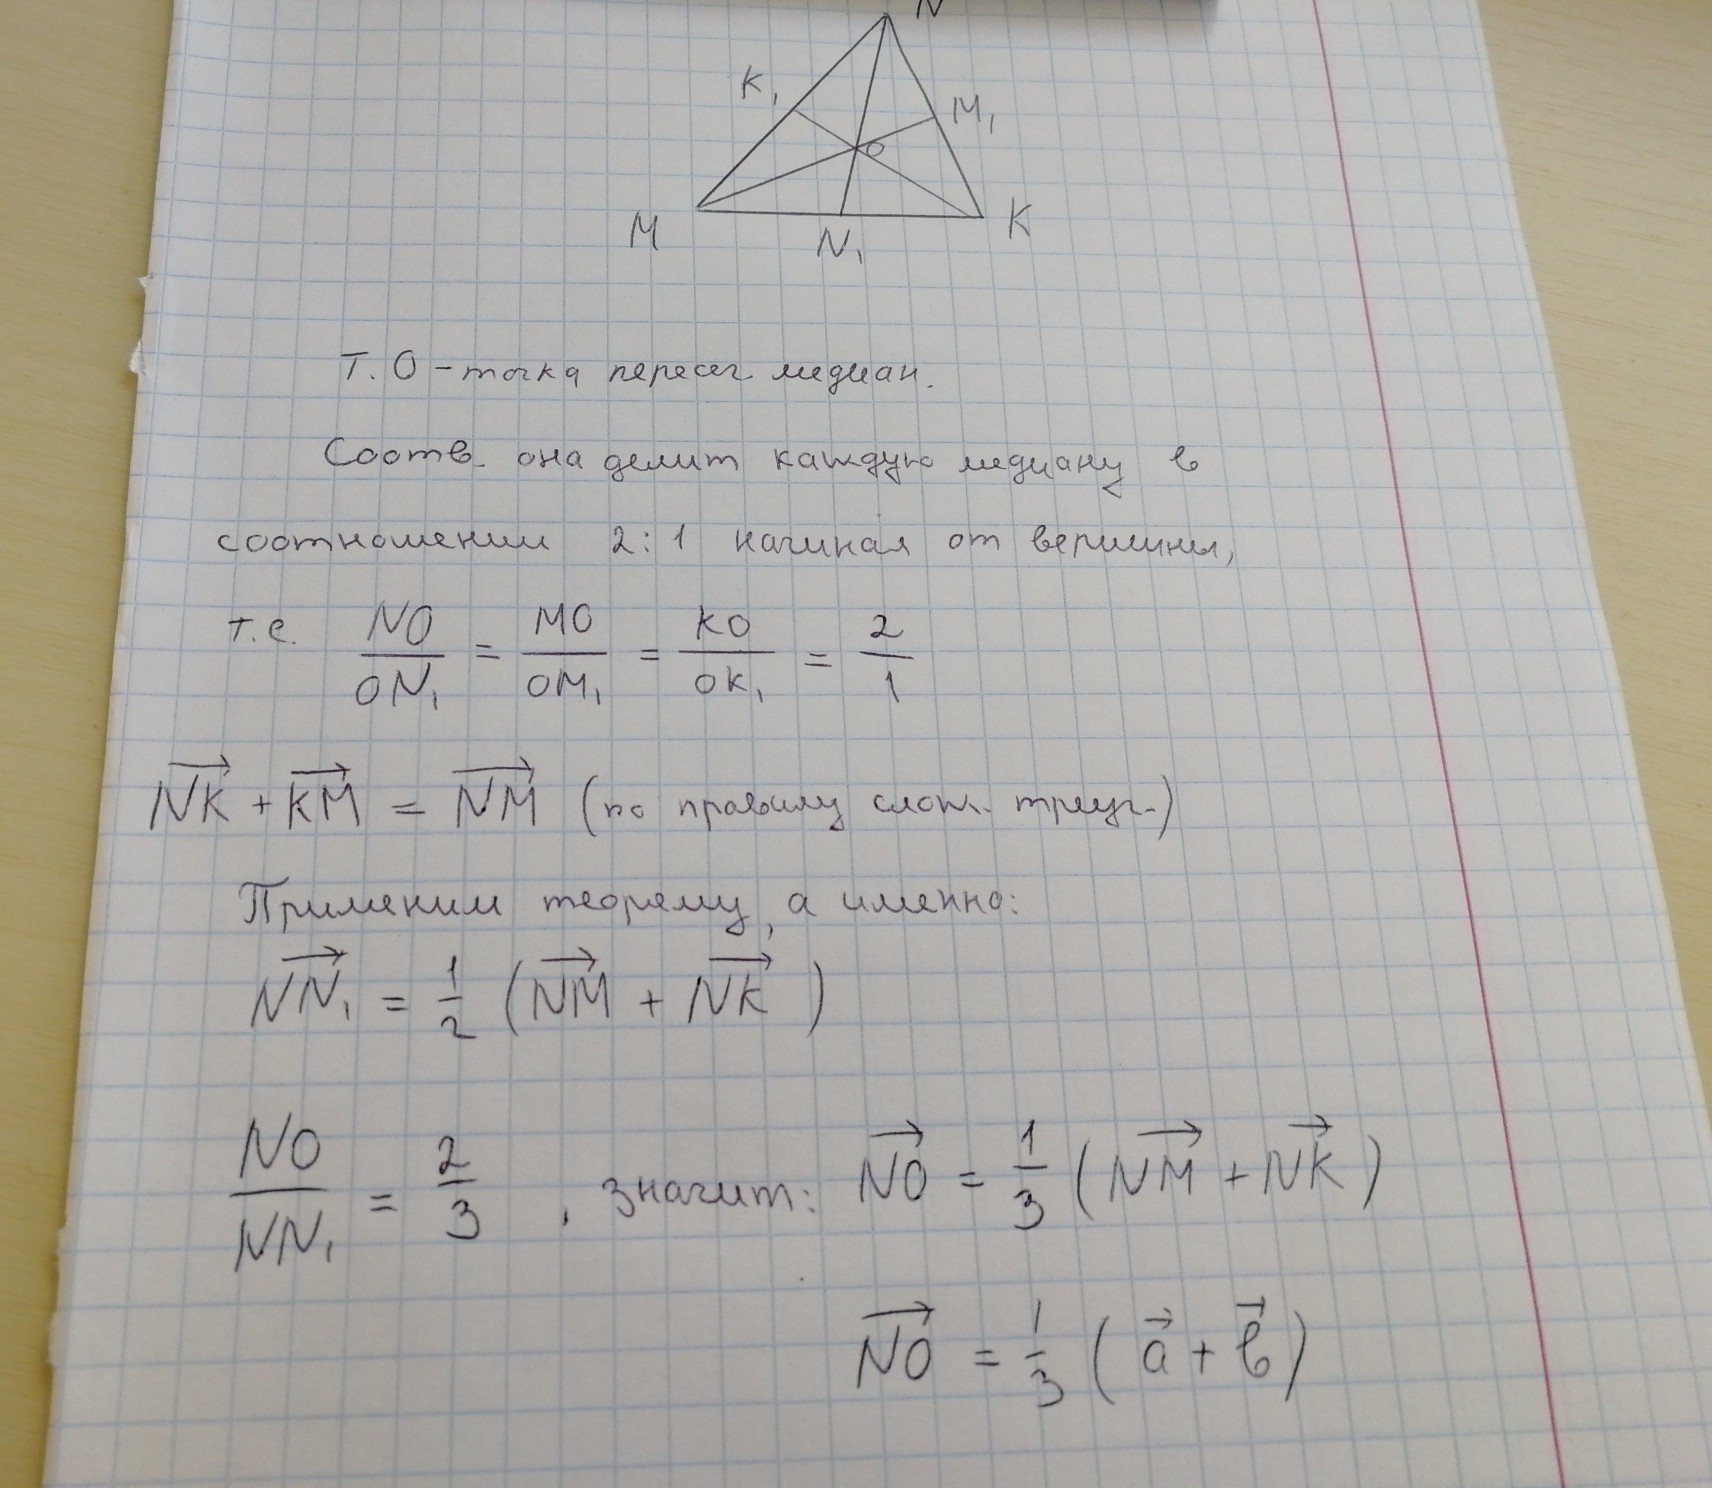 N
K₁
M₁
O
M
K
N₁
Т. О – точка пересеч медиан.
Соотв. она делит каждую медиану в
соотношении 2:1 начиная от вершины,
т.е. NO/ON₁ = MO/OM₁ = KO/OK₁ = 2/1
\overrightarrow{NK} + \overrightarrow{KM} = \overrightarrow{NM} (по правилу слож. треуг.)
Применим теорему, а именно:
\overrightarrow{NN₁} = 1/2 (\overrightarrow{NM} + \overrightarrow{NK})
NO/NN₁ = 2/3, значит: \overrightarrow{NO} = 1/3 (\overrightarrow{NM} + \overrightarrow{NK})
\overrightarrow{NO} = 1/3 (\vec{a} + \vec{b})